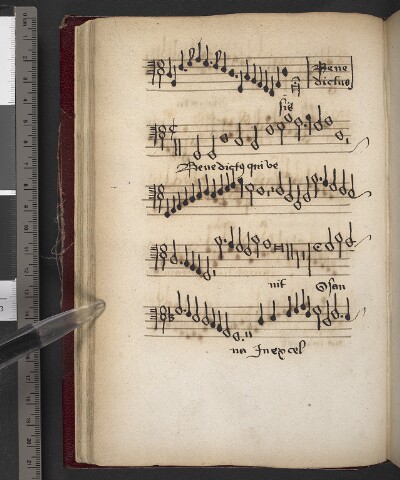 Bene
dictus
sis
Benedictus qui ve
nit Osan
na In excel